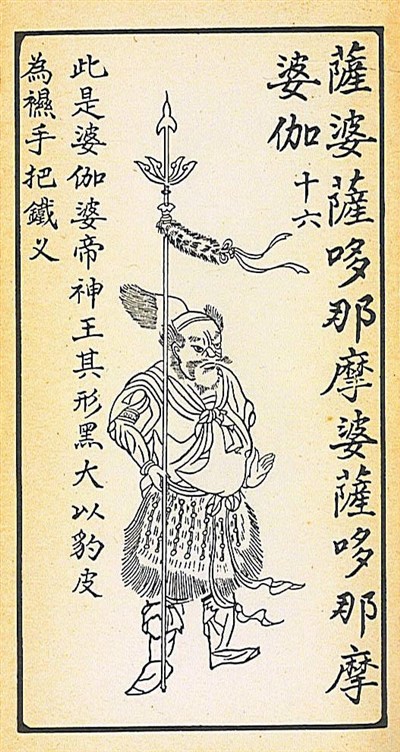 薩婆薩哆那摩婆薩哆那摩
婆伽 十六
此是婆伽婆帝神王其形黑大以豹皮
為䙝手把鐵义